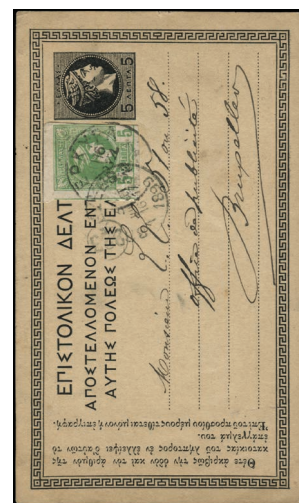 ΕΠΙΣΤΟΛΙΚΟΝ ΔΕΛΤ
ΑΠΟΣΤΕΛΛΟΜΕΝΟΝ ΕΝΤ
ΑΥΤΗΣ ΠΟΛΕΩΣ ΤΗΣ ΕΛ
5 ΛΕΠΤΑ 5
Monsieur
58.
office de publicité
Bruxelles
Θέτε ἀκριβῶς τὴν ὁδὸν καὶ τὸν ἀριθμὸν τῆς
κατοικίας τοῦ λήπτορος ἐν ἐλλείψει δ' αὐτῶν τὸ
ἐπάγγελμά του.
Ἐπὶ τοῦ προσθίου μέρους τίθεται μόνον ἡ ἐπιγραφή.